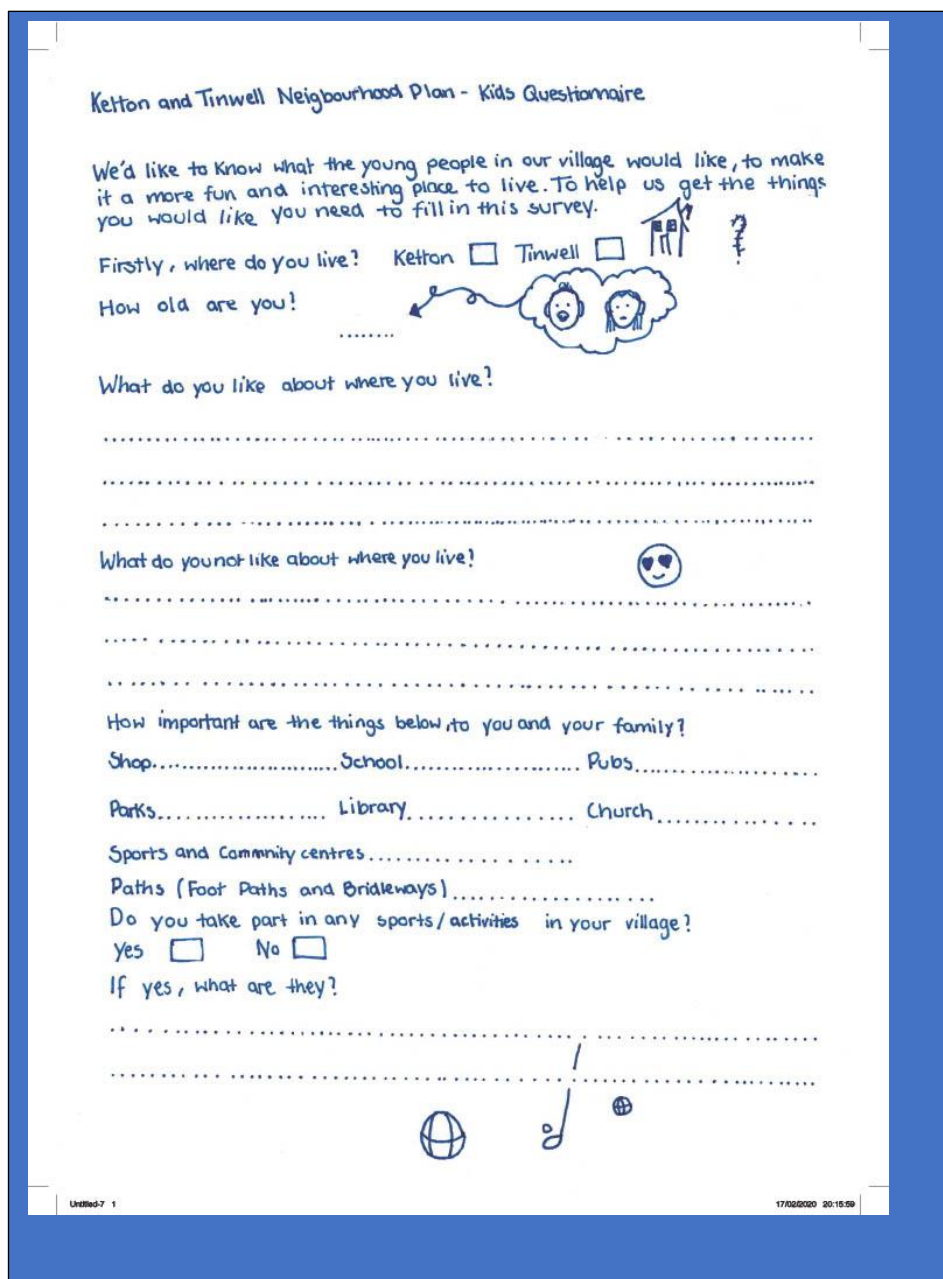 Ketton and Tinwell Neigbourhood Plan - Kids Questionnaire
We'd like to know what the young people in our village would like, to make
it a more fun and interesting place to live. To help us get the things
you would like you need to fill in this survey.
Firstly, where do you live? Ketton Tinwell
How old are you?
........
What do you like about where you live?
What do you not like about where you live?
How important are the things below, to you and your family?
Shop.......................... School........................ Pubs........................
Parks..................... Library.................... Church..................
Sports and Commnity centres....................
Paths (Foot Paths and Bridleways)....................
Do you take part in any sports/activities in your village?
Yes No
If yes, what are they?
Untitled-7 1 17/02/2020 20:15:59